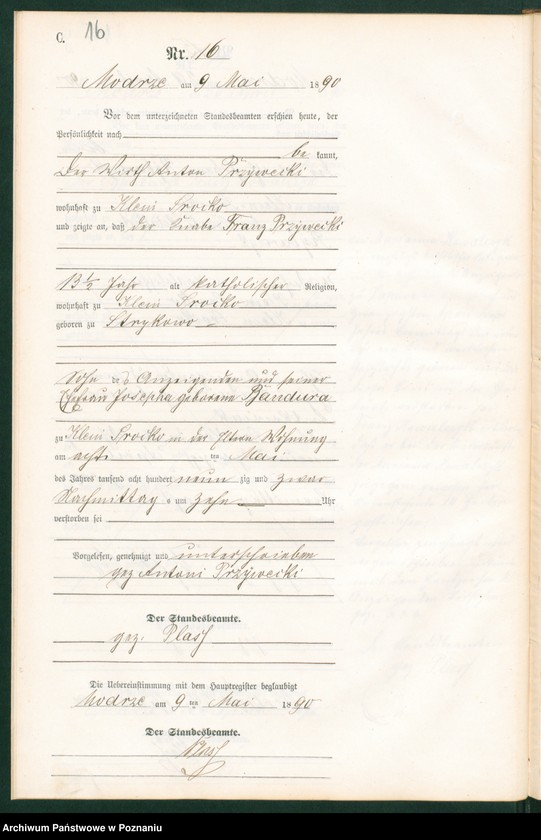 C. 16
Nr. 16
Modrze am 9 Mai 1890
Vor dem unterzeichneten Standesbeamten erschien heute, der
Persönlichkeit nach
be kannt,
Der Wirth Anton Przÿwecki
wohnhaft zu Klein Sroiko
und zeigte an, daß der Knabe Franz Przÿwecki
13 1/2 Jahr alt katholischer Religion,
wohnhaft zu Klein Sroiko
geboren zu Strykowo
Sohn des Anzeigenden und seiner
Ehefrau Josepha geborene Bandura
zu Klein Sroiko in der Eltern Wohnung
am acht ten Mai
des Jahres tausend acht hundert neun zig und zwar
Nachmittag s um zehn Uhr
verstorben sei
Vorgelesen, genehmigt und unterschrieben
gez Antoni Przÿwecki
Der Standesbeamte.
gez.
Die Uebereinstimmung mit dem Hauptregister beglaubigt
Modrze am 9 ten Mai 1890
Der Standesbeamte.
Archiwum Państwowe w Poznaniu